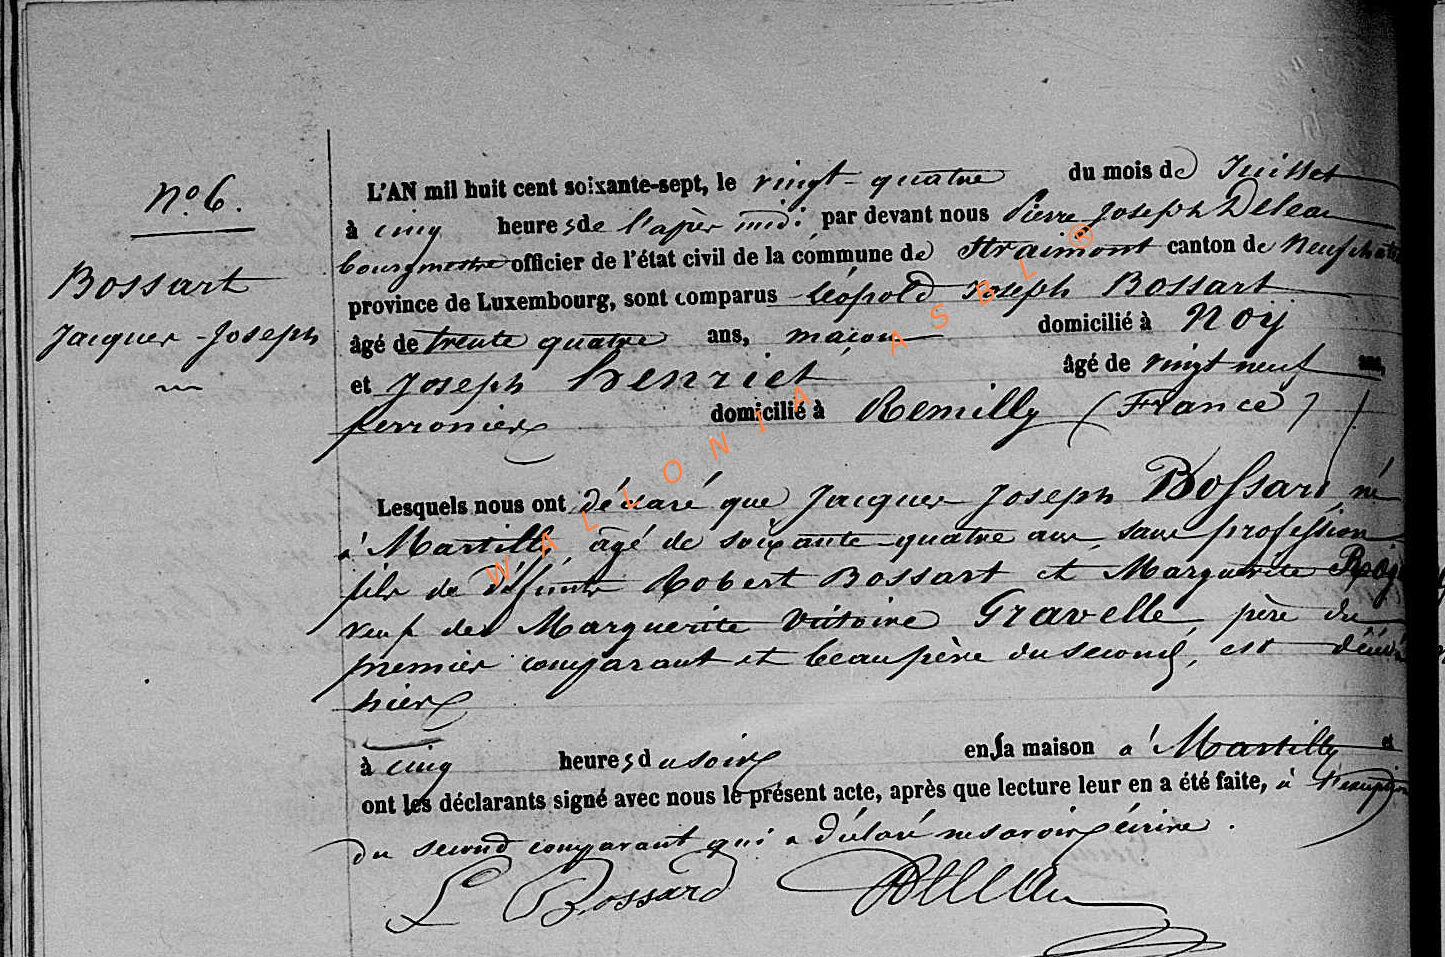 n.o 6.
Bossart
Jacques-Joseph
L'AN mil huit cent soixante-sept, le vingt-quatre du mois de Juillet
à cinq heures de l'après midi par devant nous Pierre Joseph Deleau
bourgmestre officier de l'état civil de la commune de Straimont canton de Neufchateau
province de Luxembourg, sont comparus Léopold Joseph Bossart
âgé de trente quatre ans, maçon domicilié à Noij
et Joseph henriet âgé de vingt neuf ans,
ferronier domicilié à Remilly (France)
Lesquels nous ont déclaré que Jacques Joseph Bossart né
à Martilly, âgé de soixante-quatre ans, sans profession
fils de défunts Robert Bossart et Marguerite
veuf de Marguerite Victoire Gravelle, père du
premier comparant et beau père du second, est décédé
hier
à cinq heures du soir en sa maison à Martilly et
ont les déclarants signé avec nous le présent acte, après que lecture leur en a été faite, à l'exception
du second comparant qui a déclaré ne savoir écrire.
L Bossard Deleau
WALLONIA ASBL ®